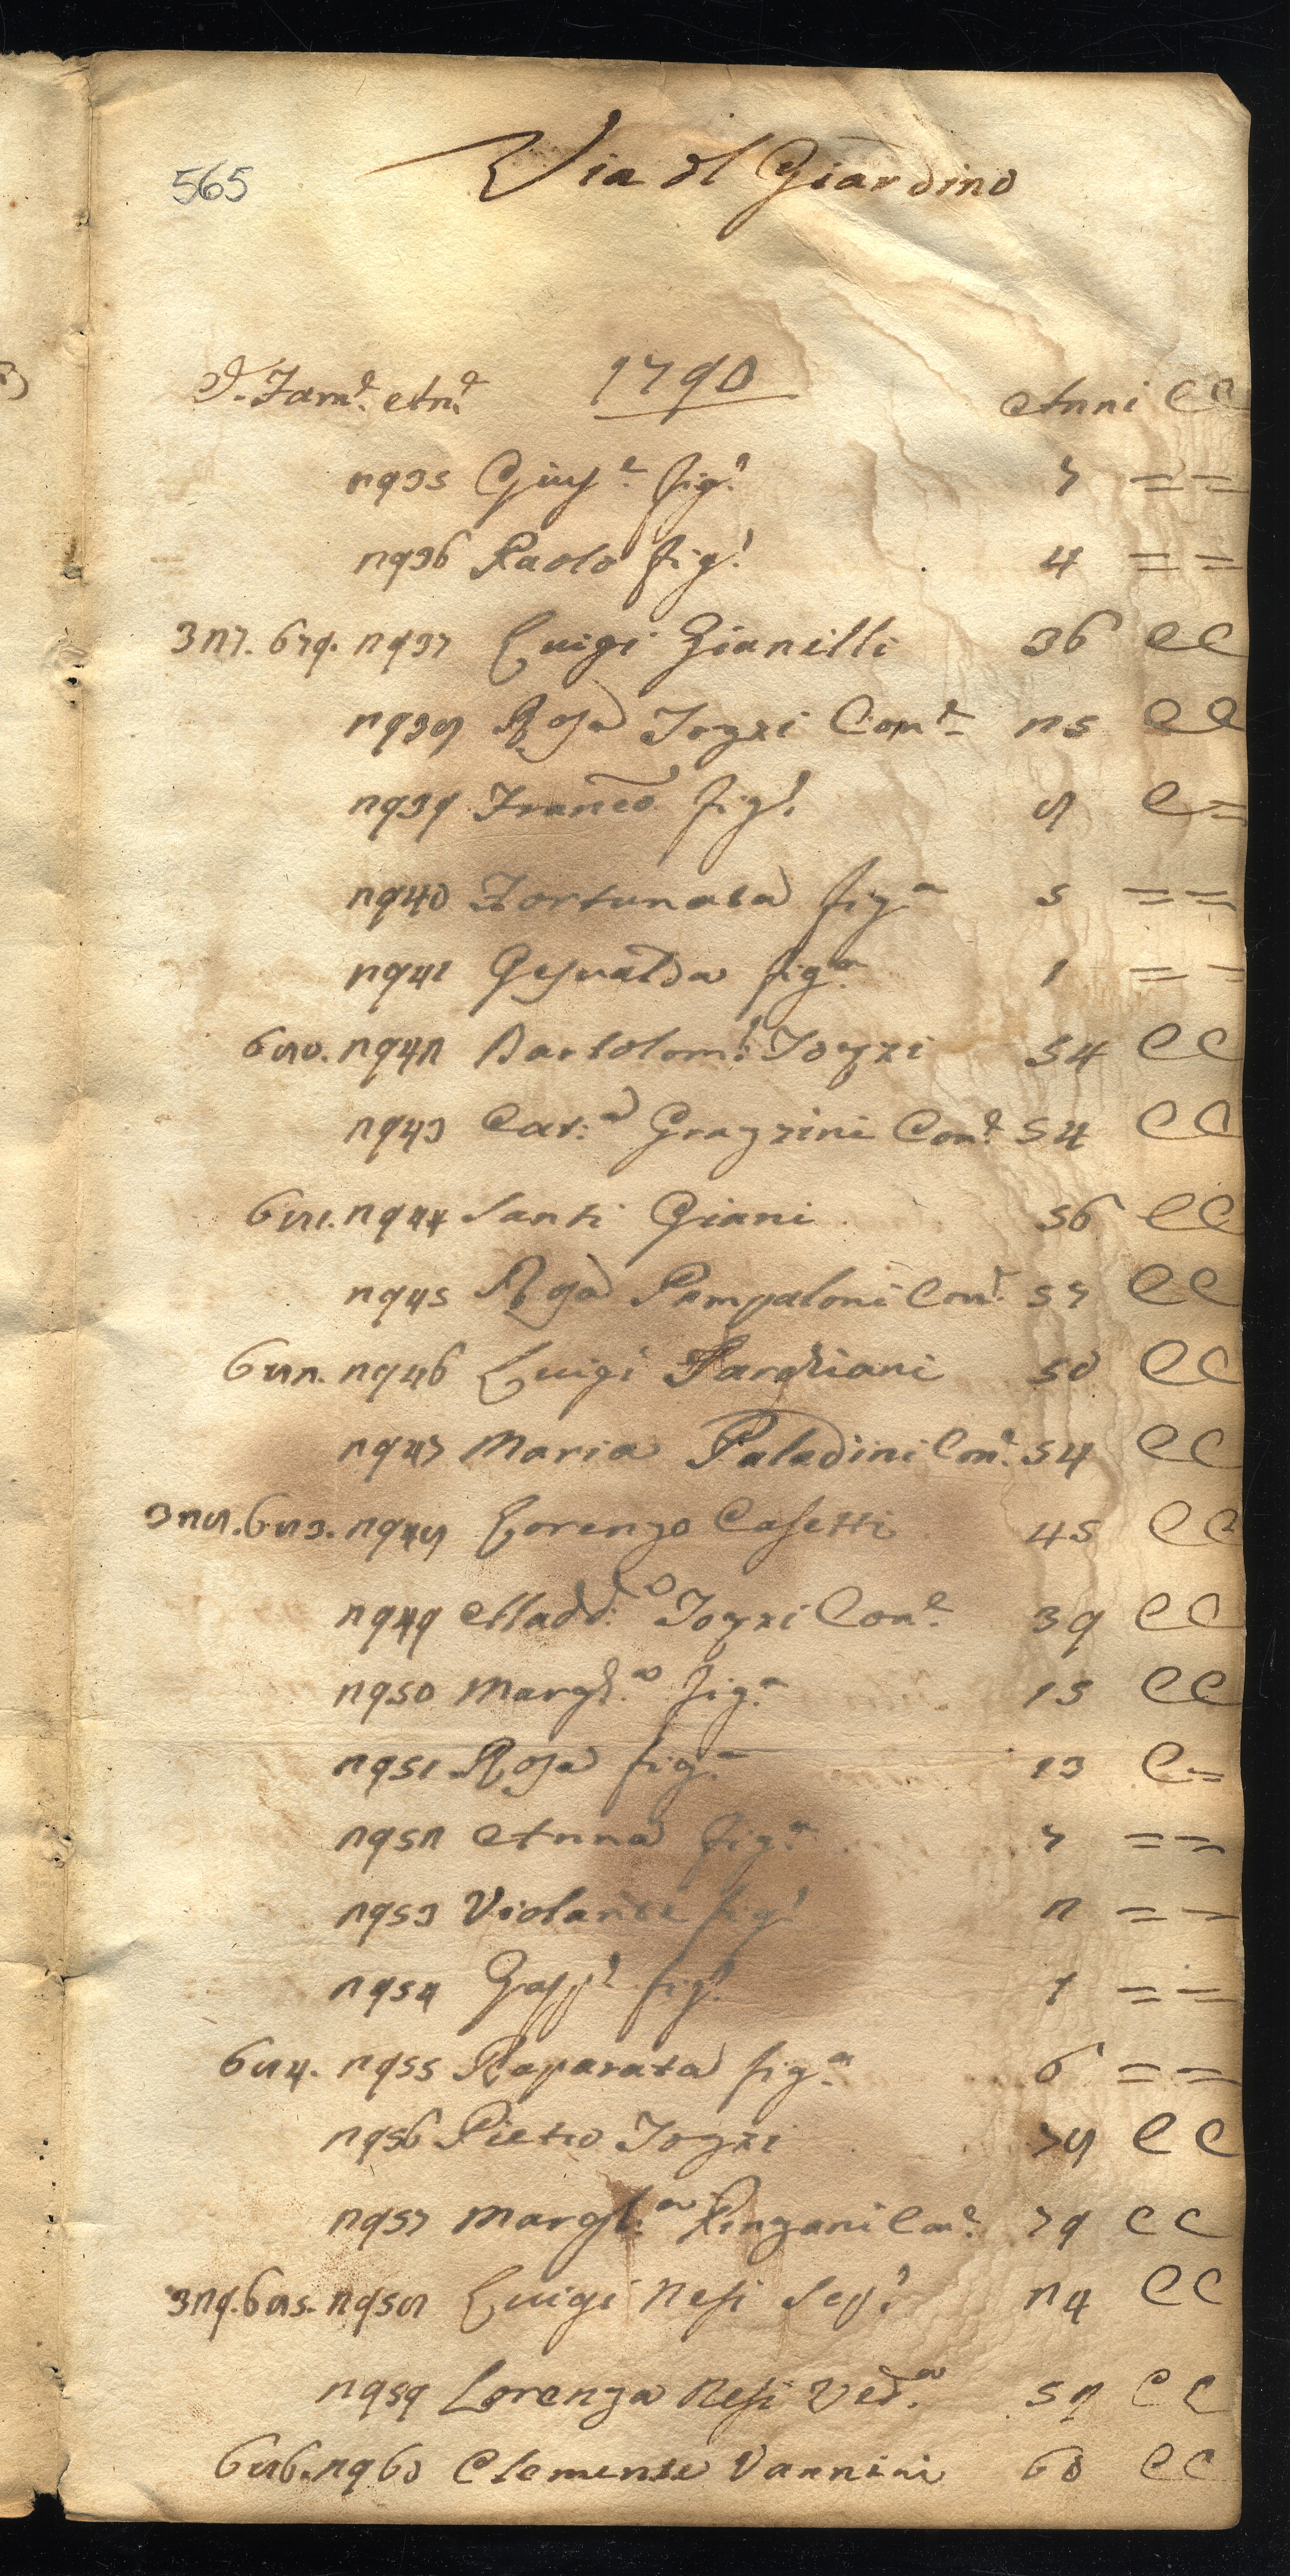 565
Via dl Giardino
I. Fam.e An.e 1790 Anni CC
2935 Gius.e fig.o 7 = =
2936 Paolo fig.o 4 = =
327. 679. 2937 Luigi Gianelli 36 CC
2938 Rosa Tozzi Con.e 25 CC
2939 Franco fig.o 8 C =
2940 Fortunata fig.a 5 = =
2941 Gesualda fig.a 1 = =
680. 2942 Bartolom.o Tozzi 54 CC
2943 Cat.a Grazzini Con.e 54 CC
681. 2944 Santi Giani 56 CC
2945 Rosa Pampaloni Con.e 57 CC
682. 2946 Luigi Parghiani 50 CC
2947 Maria Paladini Con.e 54 CC
328. 683. 2948 Lorenzo Casetti 45 CC
2949 Madd.a Tozzi Con.e 39 CC
2950 Margh.a fig.a 15 CC
2951 Rosa fig.a 13 C =
2952 Anna fig.a 7 = =
2953 Violante fig.a 2 = =
2954 Gasp.e fig.o 1 = =
684. 2955 Reparata fig.a 6 = =
2956 Pietro Tozzi 78 CC
2957 Margh.a Pinzani Con.e 79 CC
329. 685. 2958 Luigi Nesi Sep.o 24 CC
2959 Lorenza Nesi Ved.a 52 CC
686. 2960 Clemente Vannini 60 CC